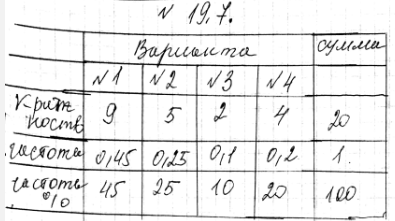 N 19.7.
Варианта сумма
N1 N2 N3 N4
Крат
ность 9 5 2 4 20
частота 0,45 0,25 0,1 0,2 1.
частота
% 45 25 10 20 100